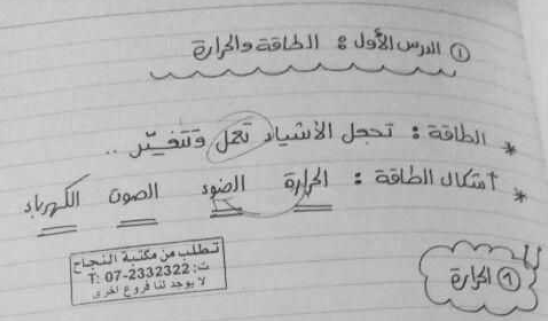 ① الدرس الأول : الطاقة والحرارة
* الطاقة : تجعل الأشياء تعمل وتتغيّر ..
* أشكال الطاقة : الحرارة الضوء الصوت الكهرباء
① الحرارة
تطلب من مكتبة النجاح
ت: T: 07-2332322
لا يوجد لنا فروع اخرى